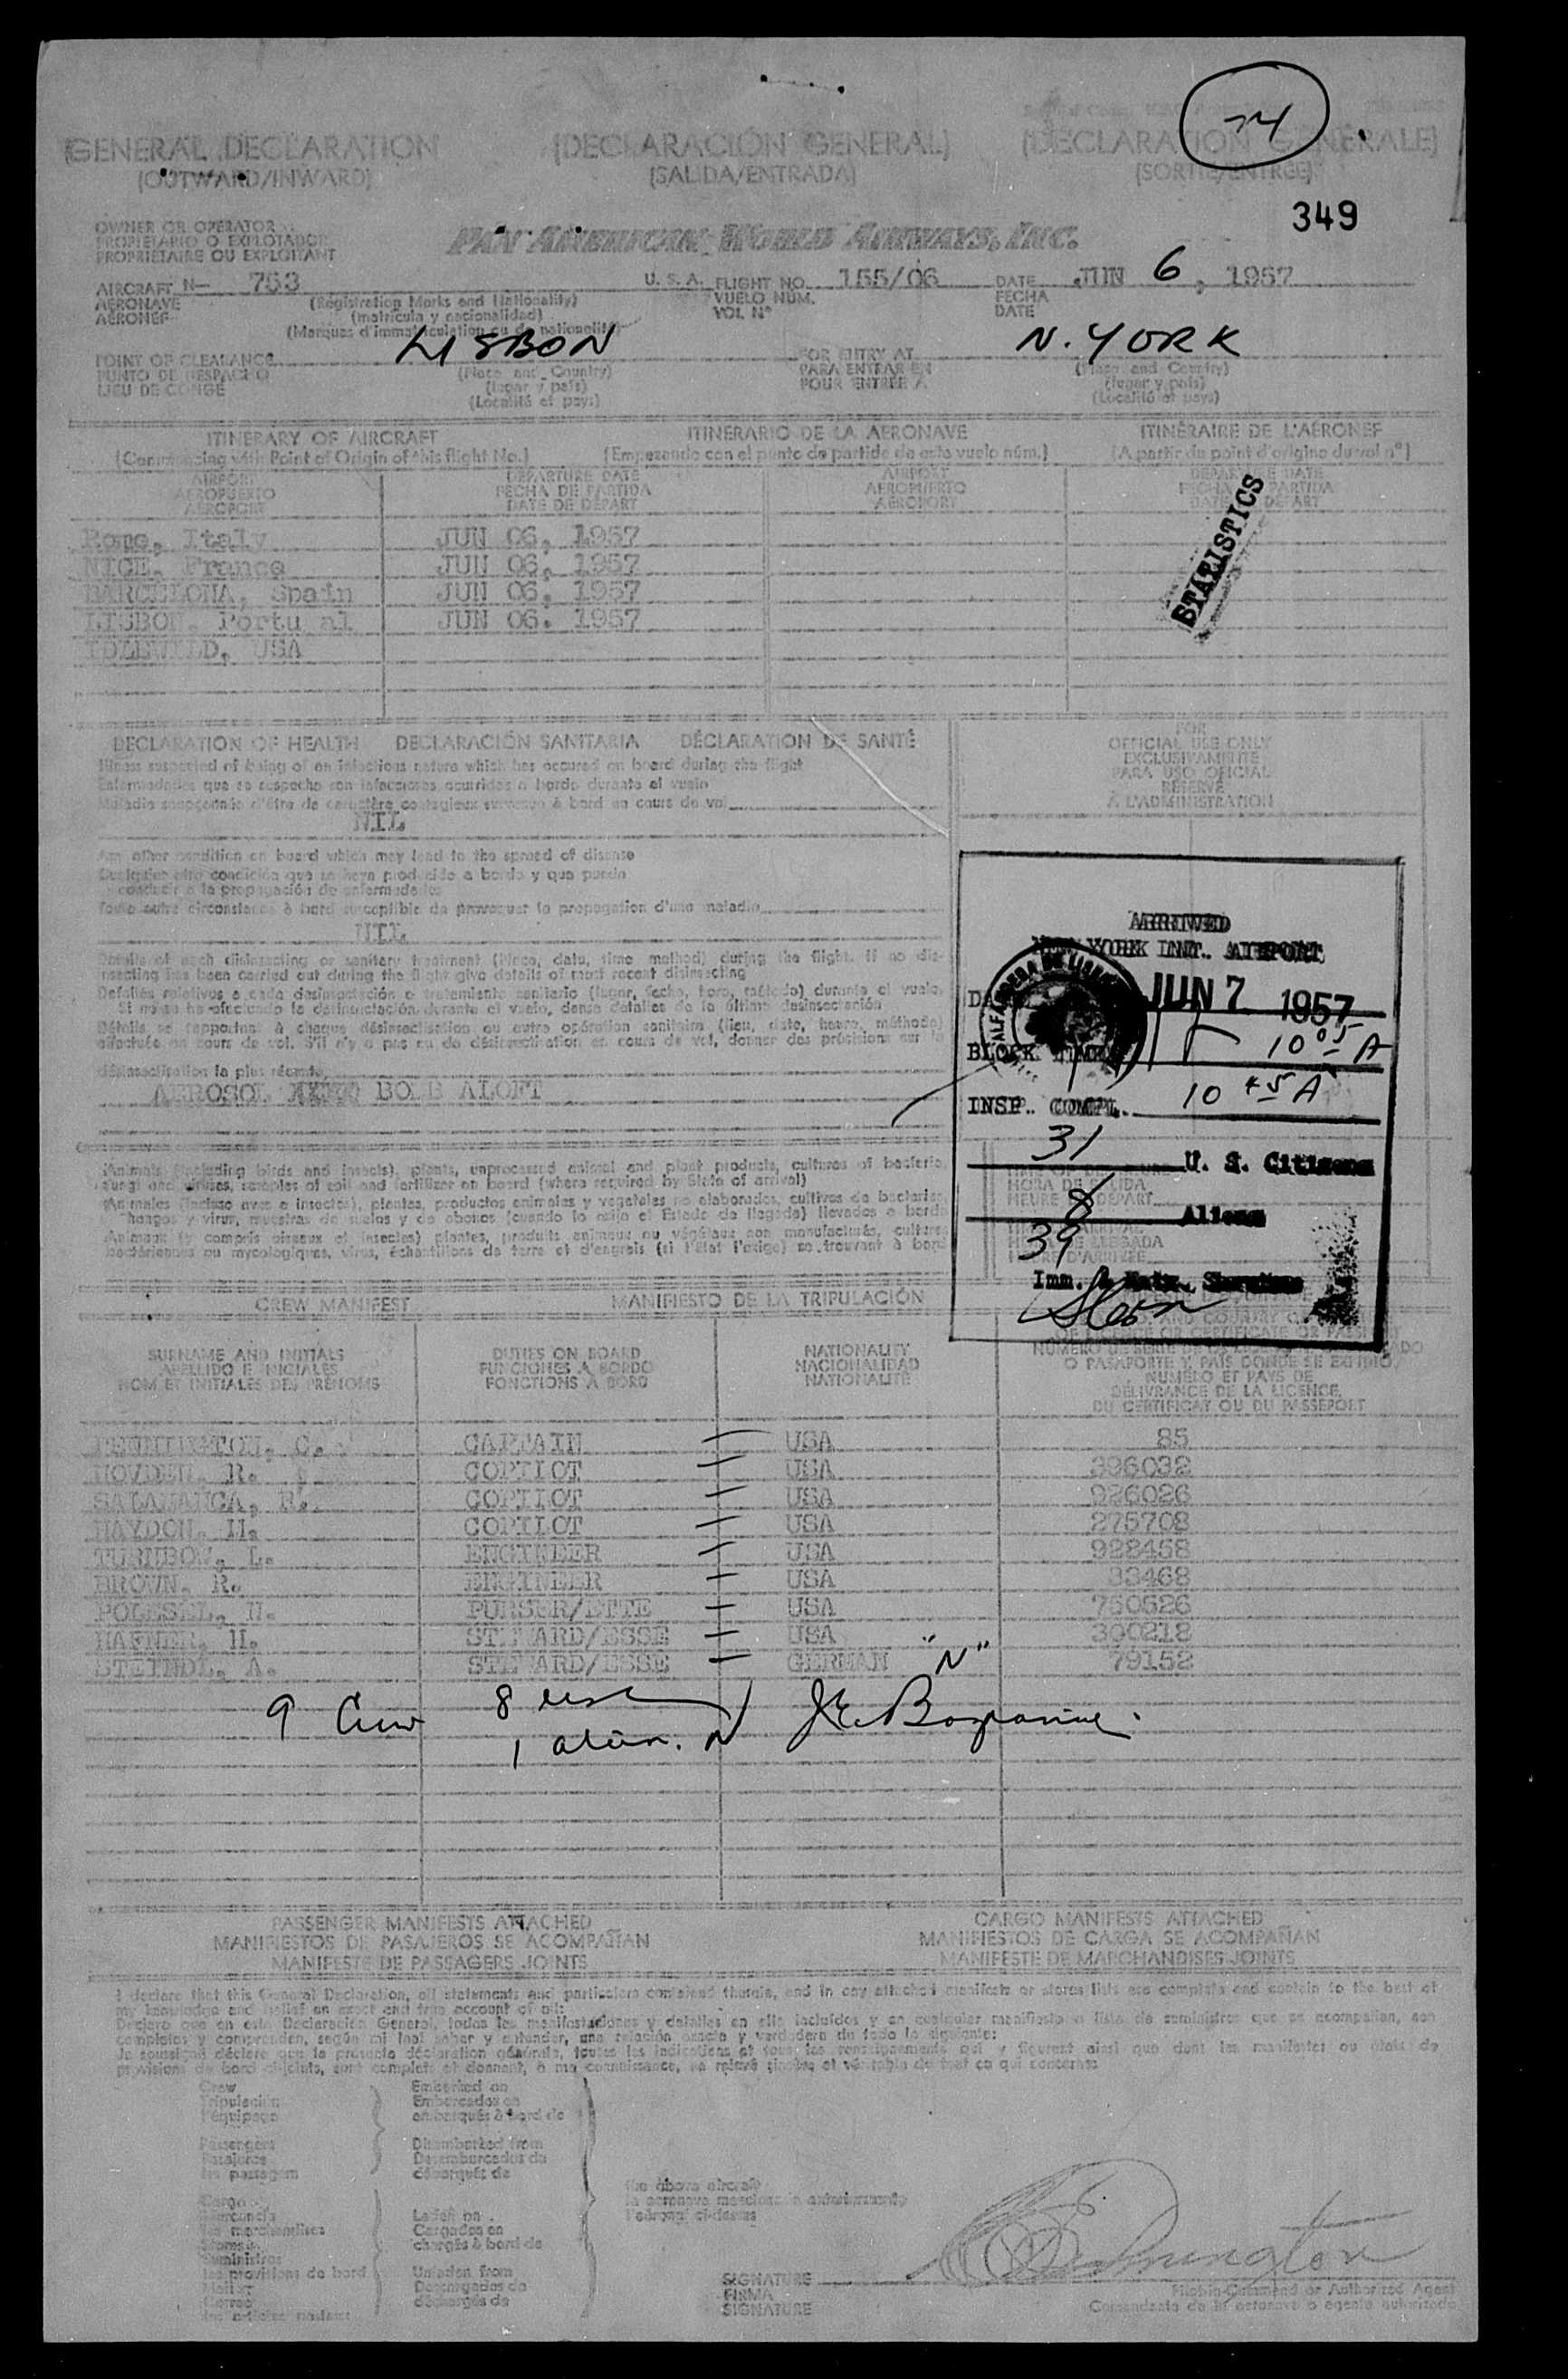 74
(GENERAL DECLARATION (DECLARACIÓN GENERAL) (DECLARATION GÉNÉRALE)
(OUTWARD/INWARD) (SALIDA/ENTRADA) (SORTIE/ENTRÉE)
349
OWNER OR OPERATOR
PROPIETARIO O EXPLOTADOR
PROPRIÉTAIRE OU EXPLOITANT
PAN AMERICAN WORLD AIRWAYS, INC.
AIRCRAFT N- 753 U. S. A. FLIGHT NO. 155/06 DATE JUN 6, 1957
AERONAVE (Registration Marks and Nationality) VUELO NÚM. FECHA
AÉRONEF (matrícula y nacionalidad) VOL N° DATE
(Marques d'immatriculation ou de nationalité)
POINT OF CLEARANCE LISBON FOR ENTRY AT N. YORK
PUNTO DE DESPACHO (Place and Country) PARA ENTRAR EN (Place and Country)
LIEU DE CONGÉ (lugar y país) POUR ENTRÉE À (lugar y país)
(Localité et pays) (Localité et pays)
ITINERARY OF AIRCRAFT ITINERARIO DE LA AERONAVE ITINÉRAIRE DE L'AÉRONEF
(Commencing with Point of Origin of this flight No.) (Empezando con el punto de partida de este vuelo núm.) (A partir du point d'origine du vol n°)
AIRPORT DEPARTURE DATE AIRPORT DEPARTURE DATE
AEROPUERTO FECHA DE PARTIDA AEROPUERTO FECHA DE PARTIDA
AÉROPORT DATE DE DÉPART AÉROPORT DATE DE DÉPART
STATISTICS
Rome, Italy JUN 06, 1957
NICE, France JUN 06, 1957
BARCELONA, Spain JUN 06, 1957
LISBON, Portu al JUN 06. 1957
IDLEWILD, USA
DECLARATION OF HEALTH DECLARACIÓN SANITARIA DÉCLARATION DE SANTÉ
Illness suspected of being of an infectious nature which has occured on board during the flight
Enfermedades que se sospecha son infecciosas ocurridas a bordo durante el vuelo
Maladie soupçonnée d'être de caractère contagieux survenue à bord en cours de vol
NIL
FOR
OFFICIAL USE ONLY
EXCLUSIVAMENTE
PARA USO OFICIAL
RÉSERVÉ
À L'ADMINISTRATION
Any other condition on board which may lead to the spread of disease
Cualquier otra condición que se haya producido a bordo y que pueda
conducir a la propagación de enfermedades
Toute autre circonstance à bord susceptible de provoquer la propagation d'une maladie
NIL
Details of each disinsecting or sanitary treatment (place, date, time method) during the flight. If no dis-
insecting has been carried out during the flight give details of most recent disinsecting
Detalles relativos a cada desinsectación o tratamiento sanitario (lugar, fecha, hora, método) durante el vuelo.
Si no se ha efectuado la desinsectación durante el vuelo, dense detalles de la última desinsectación
Détails se rapportant à chaque désinsectisation ou autre opération sanitaire (lieu, date, heure, méthode)
effectuée en cours de vol. S'il n'y a pas eu de désinsectisation en cours de vol, donner des précisions sur la
désinsectisation la plus récente
AEROSOL BOMB ALOFT
ARRIVED
NEW YORK INT. AIRPORT
JUN 7 1957
BLOCK TIME 10 05 A
INSP. COMPL. 10 45 A
31 U. S. Citizens
8 Aliens
39
Imm. & Natz. Service
Animals (including birds and insects), plants, unprocessed animal and plant products, cultures of bacteria,
fungi and viruses, samples of soil and fertilizer on board (where required by State of arrival)
Animales (incluso aves e insectos), plantas, productos animales y vegetales no elaborados, cultivos de bacterias,
hongos y virus, muestras de suelos y de abonos (cuando lo exija el Estado de llegada) llevados a bordo
Animaux (y compris oiseaux et insectes) plantes, produits animaux ou végétaux non manufacturés, cultures
bactériennes ou mycologiques, virus, échantillons de terre et d'engrais (si l'État l'exige) se trouvant à bord
CREW MANIFEST MANIFIESTO DE LA TRIPULACIÓN
SURNAME AND INITIALS DUTIES ON BOARD NATIONALITY
APELLIDO E INICIALES FUNCIONES A BORDO NACIONALIDAD
NOM ET INITIALES DES PRÉNOMS FONCTIONS À BORD NATIONALITÉ
O PASAPORTE Y PAÍS DONDE SE EXPIDIÓ
NUMÉRO ET PAYS DE
DÉLIVRANCE DE LA LICENCE,
DU CERTIFICAT OU DU PASSEPORT
PENNINGTON, C. CAPTAIN USA 85
HOVDEN, R. COPILOT USA 396032
SALAMANCA, F. COPILOT USA 926026
HAYDON, H. COPILOT USA 275708
TURNBOW, L. ENGINEER USA 928458
BROWN, R. ENGINEER USA 33468
POLESEL, H. PURSER/ETTE USA 750526
HAFNER, H. STEWARD/ESSE USA 300218
STEINDL, A. STEWARD/ESSE GERMAN "N" 79152
9 Crew 8 usc
1 alien. N
PASSENGER MANIFESTS ATTACHED CARGO MANIFESTS ATTACHED
MANIFIESTOS DE PASAJEROS SE ACOMPAÑAN MANIFIESTOS DE CARGA SE ACOMPAÑAN
MANIFESTE DE PASSAGERS JOINTS MANIFESTE DE MARCHANDISES JOINTS
I declare that this General Declaration, all statements and particulars contained therein, and in any attached manifests or stores lists are complete and contain to the best of
my knowledge and belief an exact and true account of all:
Declaro que en esta Declaración General, todas las manifestaciones y detalles en ella incluidos y en cualquier manifiesto o lista de suministros que se acompañan, son
completos y comprenden, según mi leal saber y entender, una relación exacta y verdadera de todo lo siguiente:
Crew Embarked on
Tripulación Embarcados en
l'équipage embarqués à bord de
Passengers Disembarked from
Pasajeros Desembarcados de
les passagers débarqués de
the above aircraft
la aeronave mencionada anteriormente
l'aéronef ci-dessus
Cargo
Mercancía Laden on
les marchandises Cargados en
Stores chargés à bord de
Suministros
les provisions de bord Unladen from
Mail Descargados de
Correo déchargés de
les articles postaux
C Pennington
SIGNATURE
FIRMA
SIGNATURE
Pilot-in-Command or Authorized Agent
Comandante de la aeronave o agente autorizado